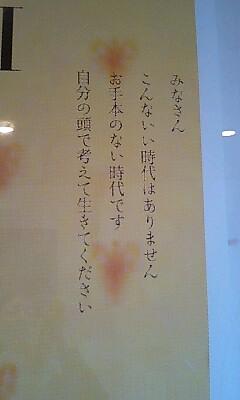 みなさん
こんないい時代はありません
お手本のない時代です
自分の頭で考えて生きてください